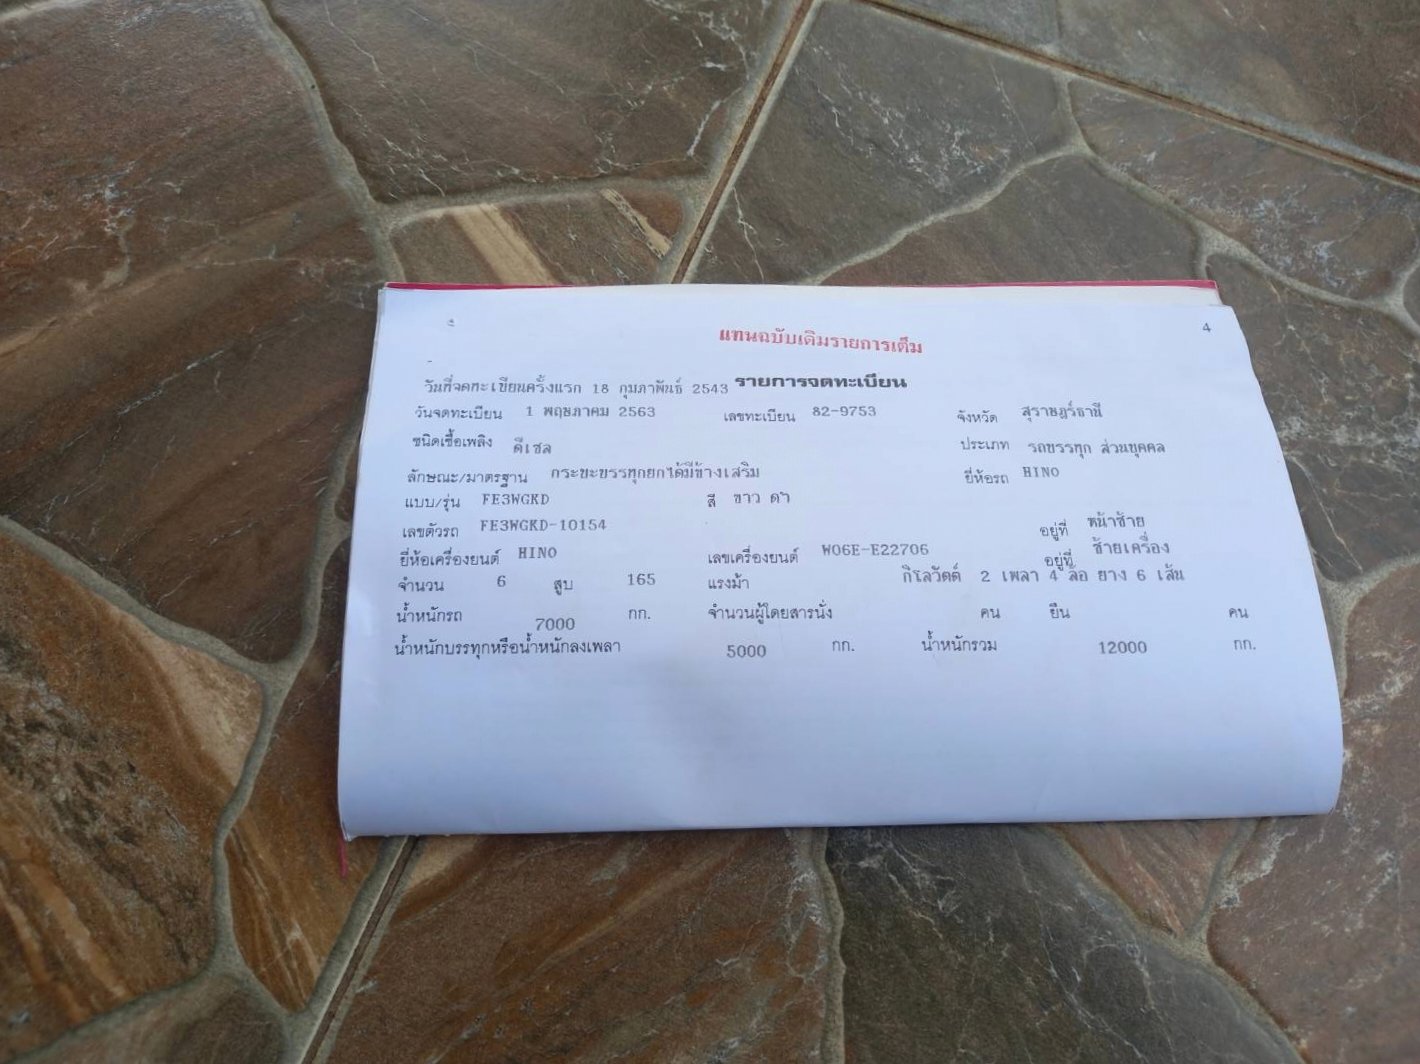 4
แทนฉบับเดิมรายการเต็ม
วันที่จดทะเบียนครั้งแรก 18 กุมภาพันธ์ 2543 รายการจดทะเบียน
วันจดทะเบียน 1 พฤษภาคม 2563 เลขทะเบียน 82-9753 จังหวัด สุราษฎร์ธานี
ชนิดเชื้อเพลิง ดีเซล ประเภท รถบรรทุก ส่วนบุคคล
ลักษณะ/มาตรฐาน กระบะบรรทุกยกได้มีข้างเสริม ยี่ห้อรถ HINO
แบบ/รุ่น FE3WGKD สี ขาว ดำ
เลขตัวรถ FE3WGKD-10154 อยู่ที่ หน้าซ้าย
ยี่ห้อเครื่องยนต์ HINO เลขเครื่องยนต์ W06E-E22706 อยู่ที่ ซ้ายเครื่อง
จำนวน 6 สูบ 165 แรงม้า กิโลวัตต์ 2 เพลา 4 ล้อ ยาง 6 เส้น
น้ำหนักรถ 7000 กก. จำนวนผู้โดยสารนั่ง คน ยืน คน
น้ำหนักบรรทุกหรือน้ำหนักลงเพลา 5000 กก. น้ำหนักรวม 12000 กก.